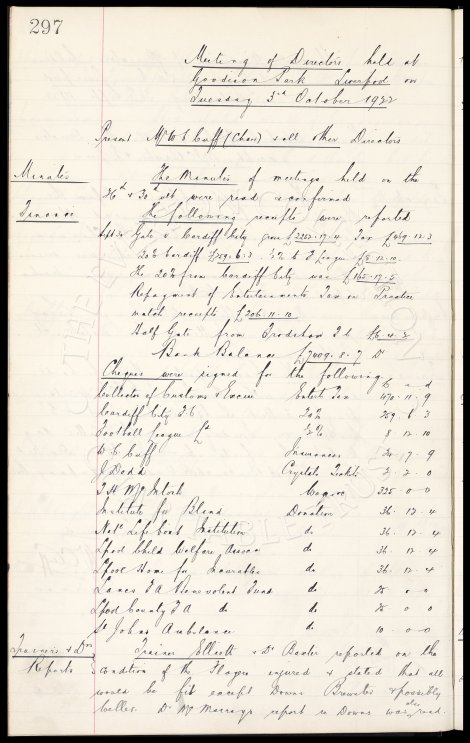 297
Meeting of Directors held at
Goodison Park Liverpool on
Tuesday 3rd October 1922
Present Mr W C Cuff (Chair) & all other Directors
Minutes
The Minutes of meetings held on the
26th & 30th ult were read & confirmed
Finance
The following receipts were reported
Sept 30 Gate v Cardiff City gross £2252.17.4 Tax £469.12.3
20% Cardiff £259.8.3 ½% to F League £8.12.10.
The 20% from Cardiff City was £165.17.5
Repayment of Entertainments Tax on Practice
match receipts £206.11.10
Half Gate from Frodsham £6.4.3
Bank Balance £7009.8.7 Dr
Cheques were signed for the following £ s d
Collector of Customs & Excise Enterts Tax 470 11 9
Cardiff City F C 20% 259 8 3
Football League Ld ½% 8 12 10
W C Cuff Insurances 20 17 9
J Dodd Crystals Tickets 2 2 0
T H McIntosh Wages 325 0 0
Institute for Blind Donation 36 12 4
Natl Life boat Institution do 36 12 4
Lpool Child Welfare Assocn do 36 12 4
Lpool Home for Incurables do 36 12 4
Lancs F A Benevolent Fund do 25 0 0
Lpool County F A do do 25 0 0
St Johns Ambulance do 10 0 0
Trainers & Drs
Trainer Elliott & Dr Baxter reported on the
Reports
condition of the Players injured & stated that all
would be fit except Downs Brewster & possibly
Weller. Dr McMurrays report re Downs was also read.